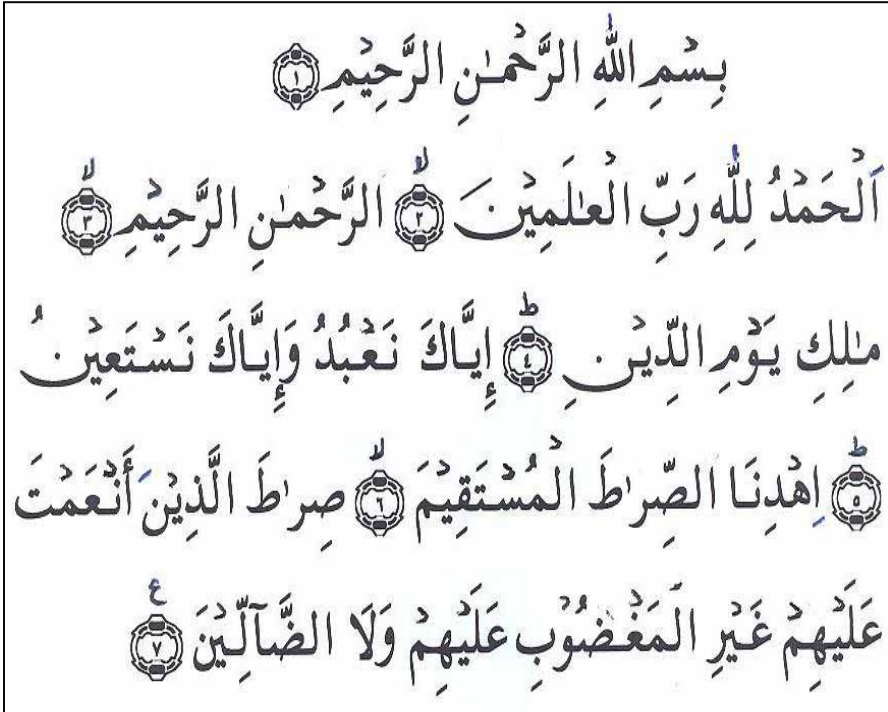 بِسۡمِ اللّٰهِ الرَّحۡمٰنِ الرَّحِيۡمِ ﴿١﴾
اَلۡحَمۡدُ لِلّٰهِ رَبِّ الۡعٰلَمِيۡنَ ۙ﴿٢﴾ الرَّحۡمٰنِ الرَّحِيۡمِ ۙ﴿٣﴾
مٰلِكِ يَوۡمِ الدِّيۡنِ ؕ﴿٤﴾ إِيَّاكَ نَعۡبُدُ وَإِيَّاكَ نَسۡتَعِيۡنُ
ؕ﴿٥﴾ اِهۡدِنَا الصِّرٰطَ الۡمُسۡتَقِيۡمَ ۙ﴿٦﴾ صِرٰطَ الَّذِيۡنَ أَنۡعَمۡتَ
عَلَيۡهِمۡ غَيۡرِ الۡمَغۡضُوۡبِ عَلَيۡهِمۡ وَلَا الضَّآلِّيۡنَ ﴿٧﴾ ع